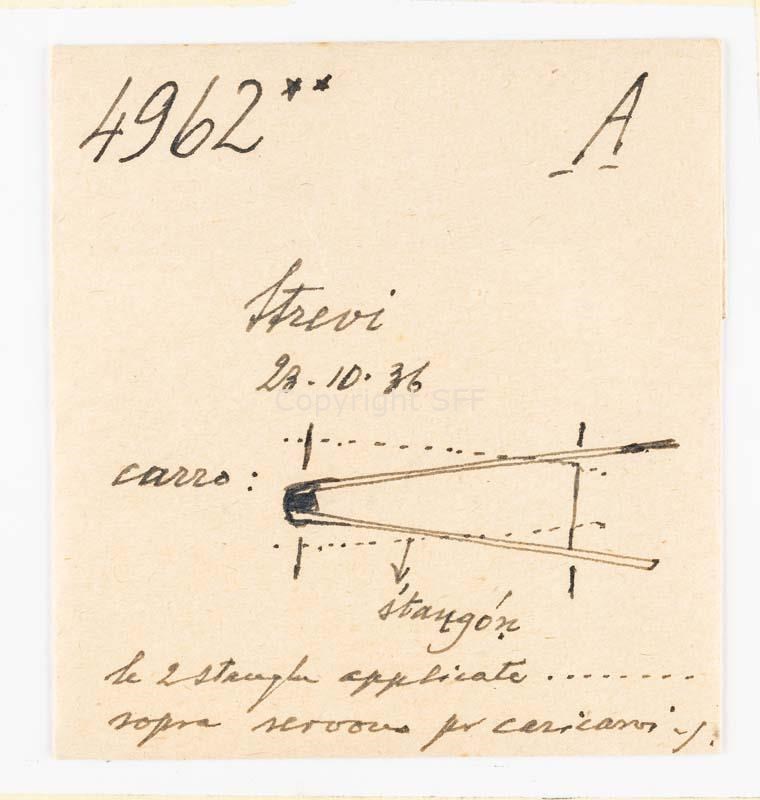 4962** A
Strevi
23.10.36
Copyright SFF
carro:
štaŋgóṇ
le 2 stanghe applicate ........
sopra servono pr caricarvi